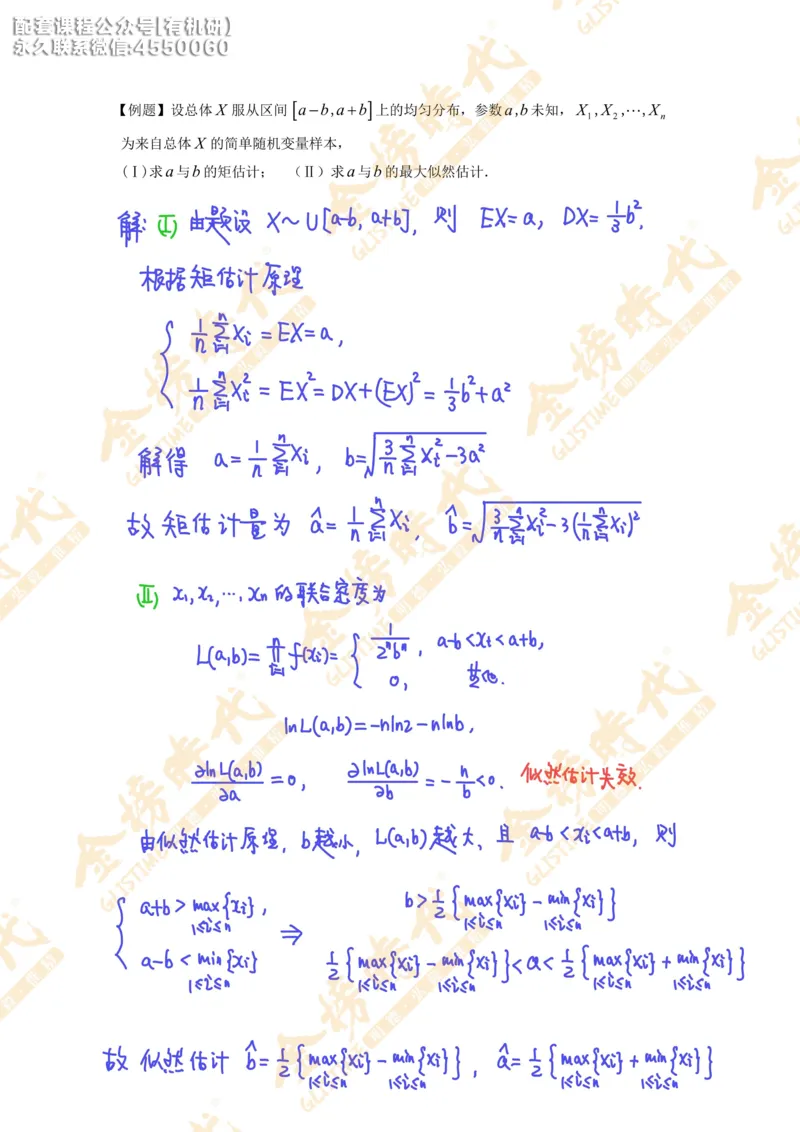 配套课程公众号[有机研)
永久联系微信:4550060
【例题】设总体X服从区间[a-b,a+b]上的均匀分布，参数a,b未知，X₁,X₂,⋯,Xₙ
为来自总体X的简单随机变量样本，
(Ⅰ)求a与b的矩估计； (Ⅱ)求a与b的最大似然估计.
解: (I) 由题设 X～U[a-b, a+b], 则 EX=a, DX=⅓b²,
根据矩估计原理
{ 1/n ∑ᵢ₌₁ⁿ Xᵢ = EX = a,
1/n ∑ᵢ₌₁ⁿ Xᵢ² = EX² = DX+(EX)² = ⅓b²+a²
解得 a = 1/n ∑ᵢ₌₁ⁿ Xᵢ, b = √(3/n ∑ᵢ₌₁ⁿ Xᵢ² - 3a²)
故矩估计量为 â = 1/n ∑ᵢ₌₁ⁿ Xᵢ, b̂ = √(3/n ∑ᵢ₌₁ⁿ Xᵢ² - 3(1/n ∑ᵢ₌₁ⁿ Xᵢ)²)
(II) x₁, x₂, ⋯, xₙ 的联合密度为
L(a,b) = ∏ᵢ₌₁ⁿ f(xᵢ) = { 1/(2ⁿbⁿ), a-b<xᵢ<a+b,
0, 其他.
lnL(a,b) = -nln2 - nlnb,
∂lnL(a,b)/∂a = 0, ∂lnL(a,b)/∂b = -n/b < 0. 似然估计失效.
由似然估计原理, b越小, L(a,b)越大、且 a-b<xᵢ<a+b, 则
{ a+b > max{xᵢ}, 1≤i≤n ⇒ b > ½{max{xᵢ} - min{xᵢ}} 1≤i≤n 1≤i≤n
a-b < min{xᵢ} 1≤i≤n ½{max{xᵢ} - min{xᵢ}} < a < ½{max{xᵢ} + min{xᵢ}} 1≤i≤n 1≤i≤n 1≤i≤n 1≤i≤n
故 似然估计 b̂ = ½{max{xᵢ} - min{xᵢ}}, â = ½{max{xᵢ} + min{xᵢ}} 1≤i≤n 1≤i≤n 1≤i≤n 1≤i≤n
金榜時代
GLISTIME